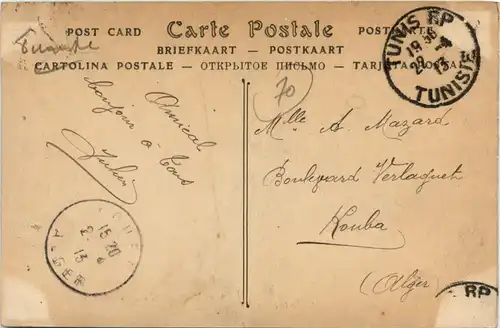 POST CARD Carte Postale POSTKARTE
BRIEFKAART — POSTKAART
CARTOLINA POSTALE — ОТКРЫТОЕ ПИСЬМО — TARJETA POSTAL
TUNIS RP
19 30
28
13
TUNISIE
70
Amical
bonjour à tous
Julien
Mlle A. Mazard
Boulevard Verlaguet
Kouba
(Alger)
KOUBA
15 20
2
13
ALGER
RP